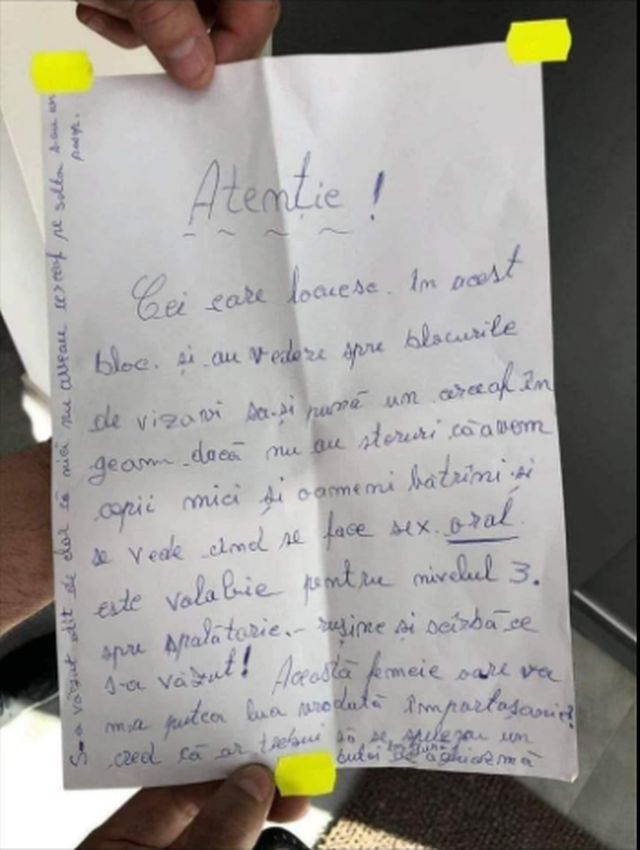 Atenție !
Cei care locuesc. în acest
bloc. și au vedere spre blocurile
de vizavi sa-și pună un cerceaf în
geam dacă nu au storuri că avem
copii mici și oameni bătrîni și
se vede cînd se face sex oral
este valabie pentru nivelul 3.
spre spalătarie. - rușine și scîrbă ce
s-a văzut! Această femeie oare va
mai putea lua vrodată împărtașanie?
cred că ar trebui să se spele cu un
butoi de aghiazmă
S-a văzut atît de clar că nici nu aveau cerceaf pe saltea sau un